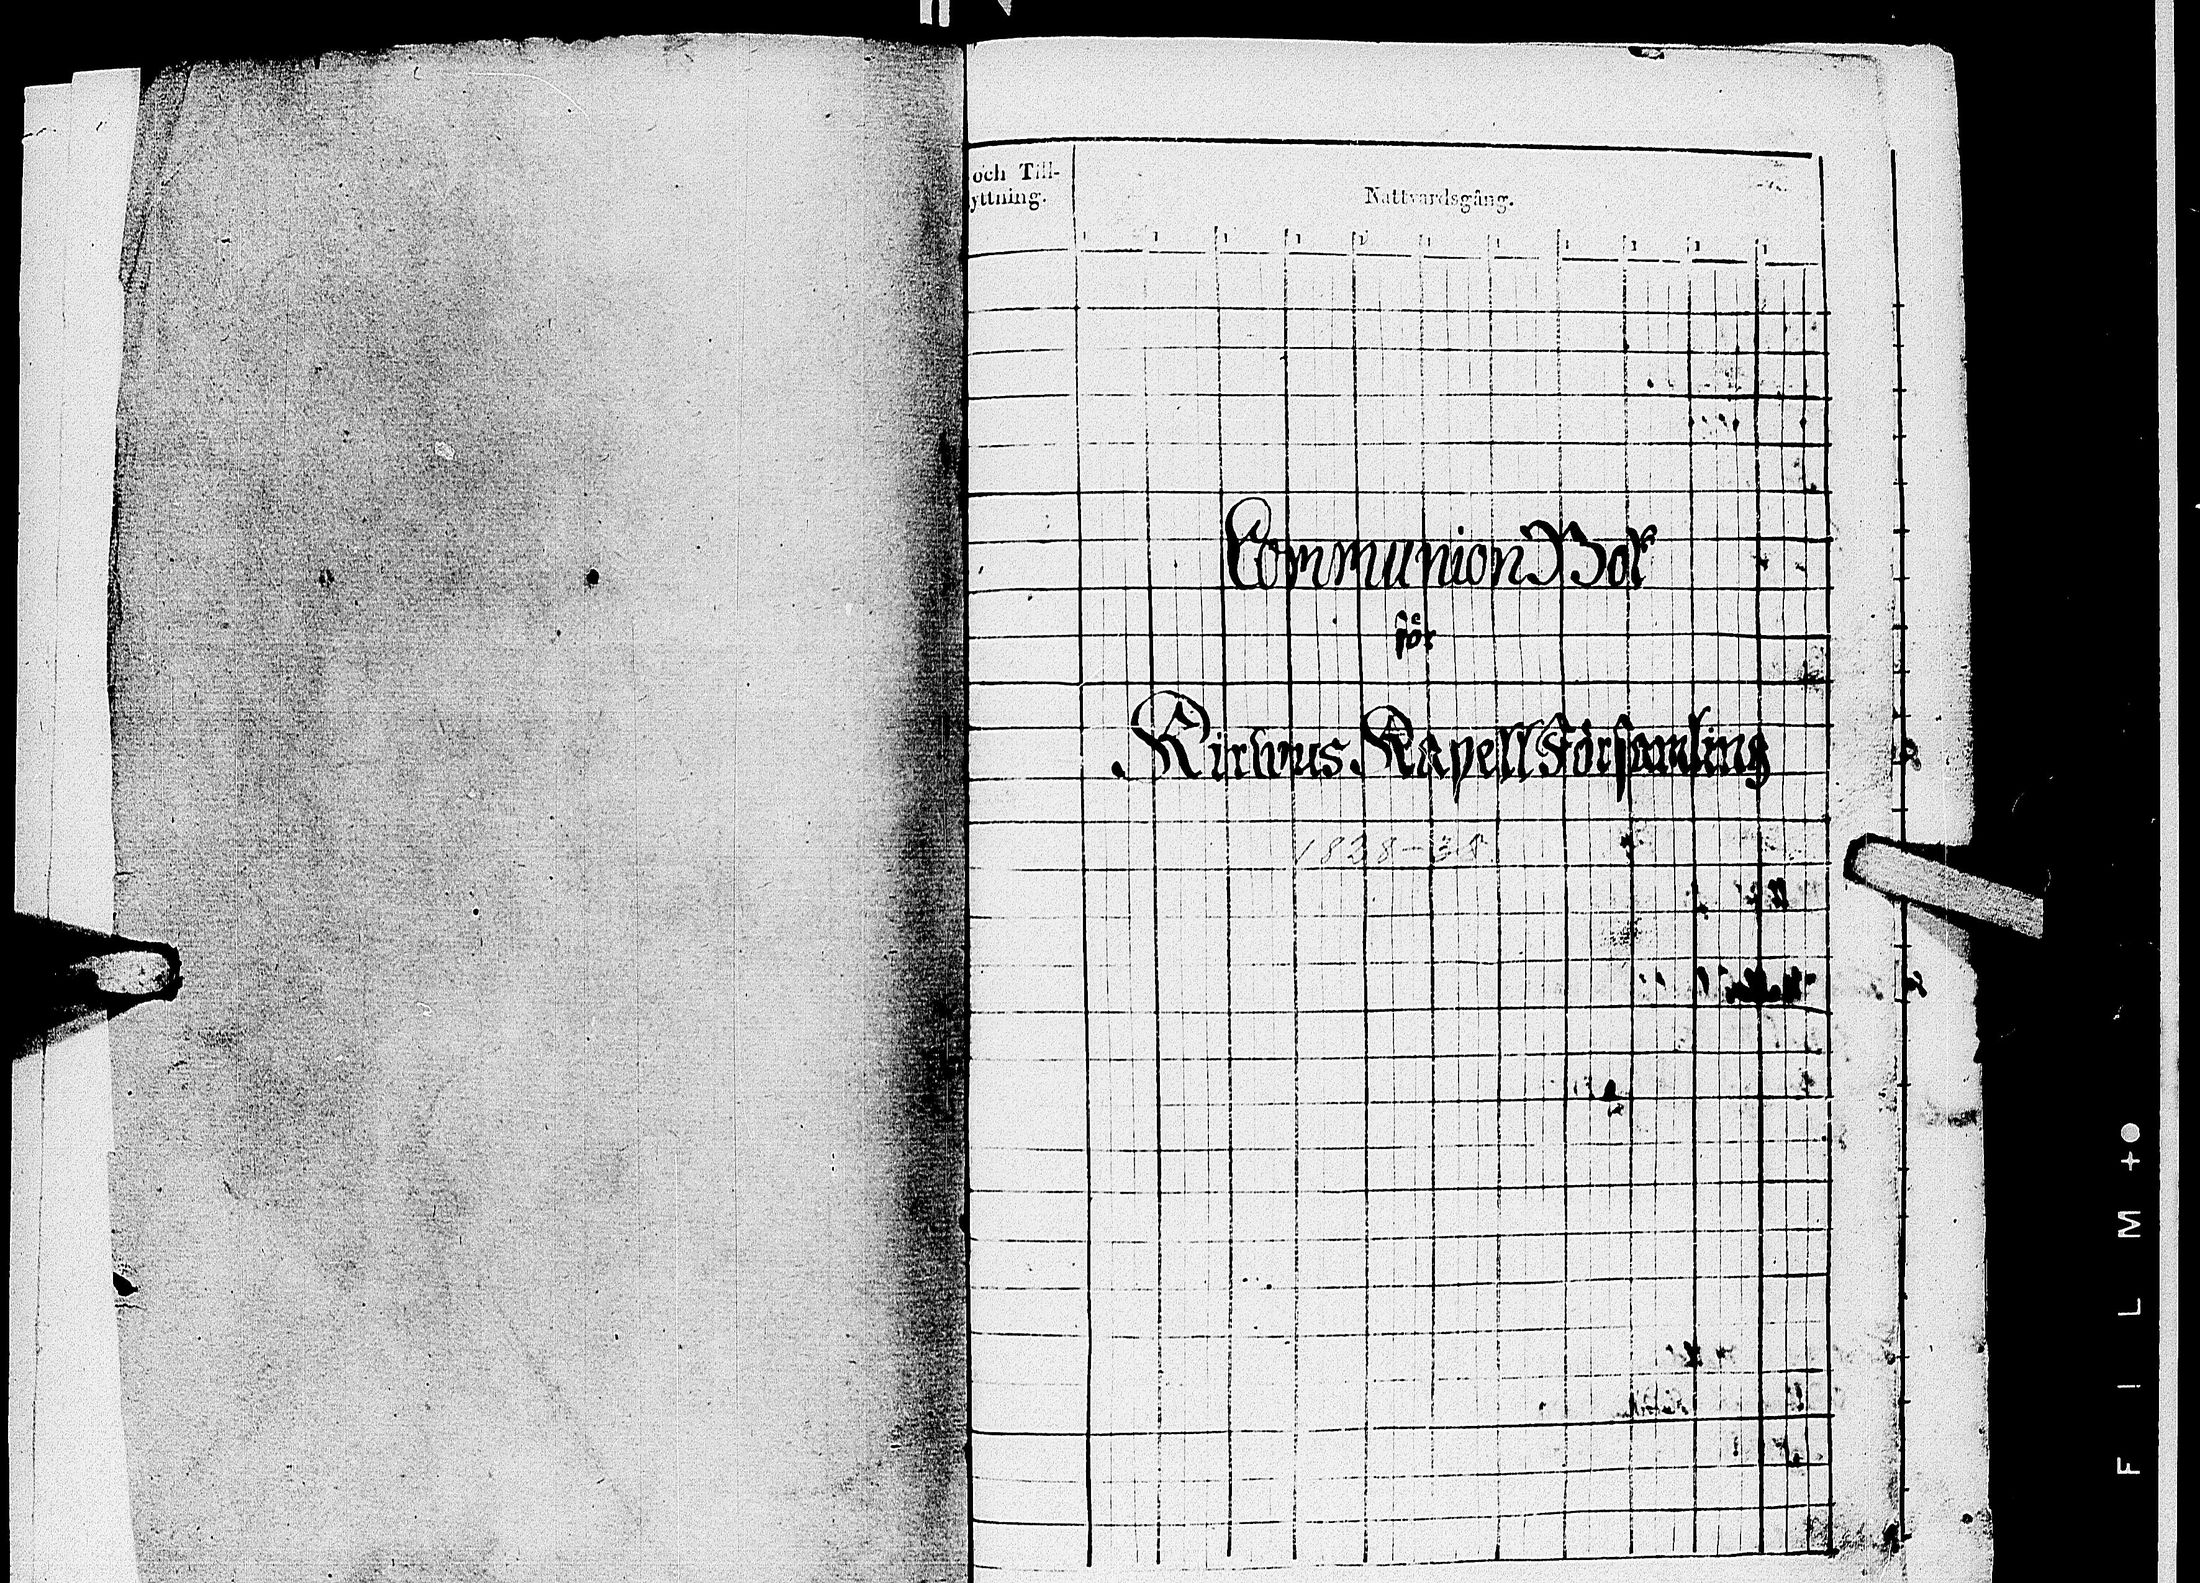 och Till-
yttning.
Nattvardsgång.
1 1 1 1 1 1 1 1 1 1 1
Communion Bok
för
Kirvus Kapell Församling
1828-34
F I L M